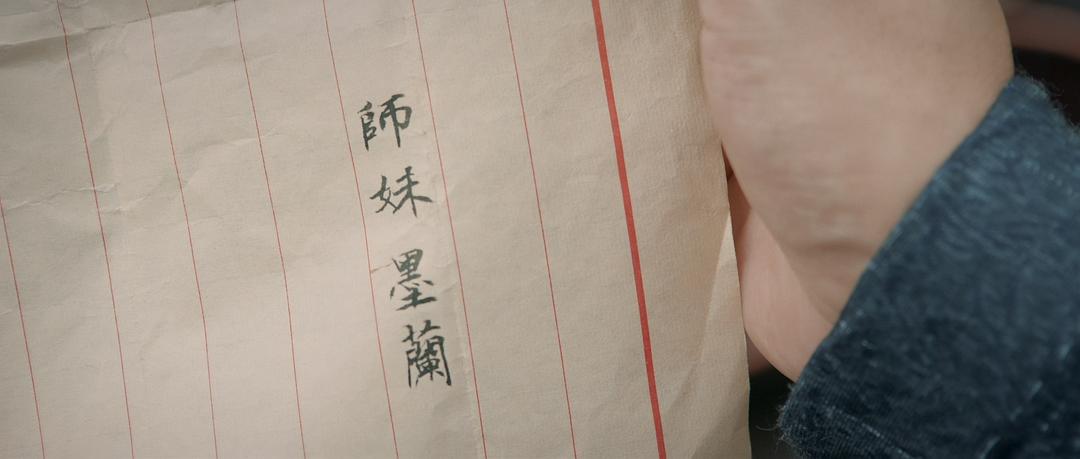 師妹墨蘭